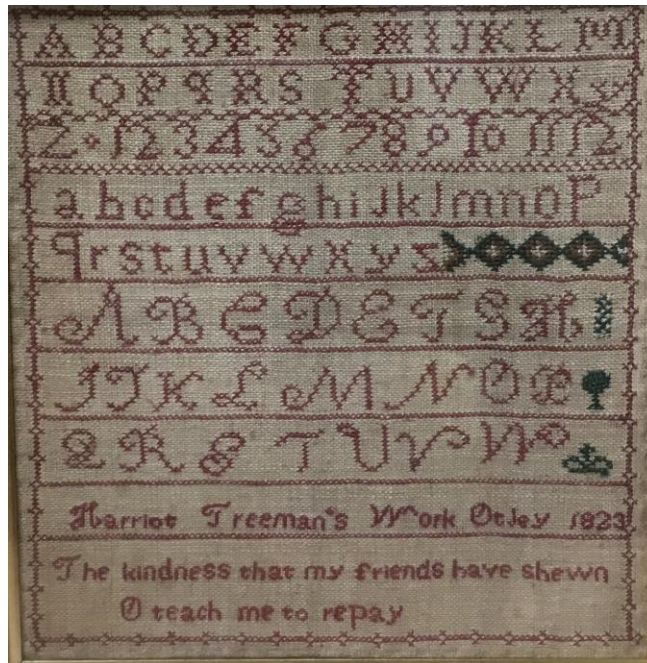 A B C D E F G H I J K L M
N O P Q R S T U V W X Y
Z 1 2 3 4 5 6 7 8 9 10 11 12
a b c d e f g h i j k l m n o p
q r s t u v w x y z
A B C D E F G H
I J K L M N O P
Q R S T U V W
Harriot Freeman's Work Otley 1823
The kindness that my friends have shewn
O teach me to repay